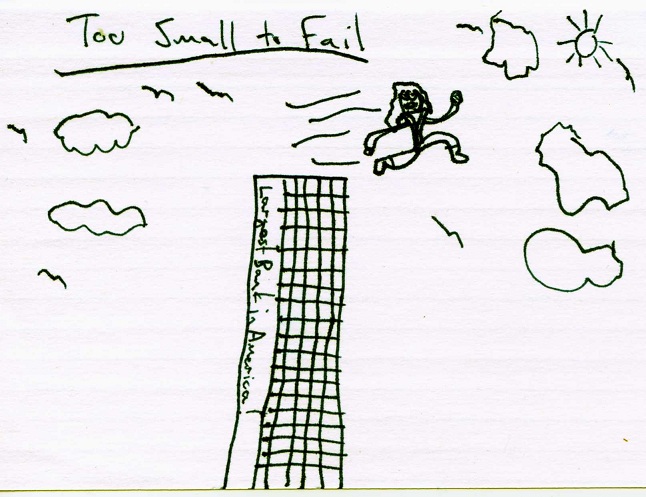 Too Small to Fail
Largest Bank in America!